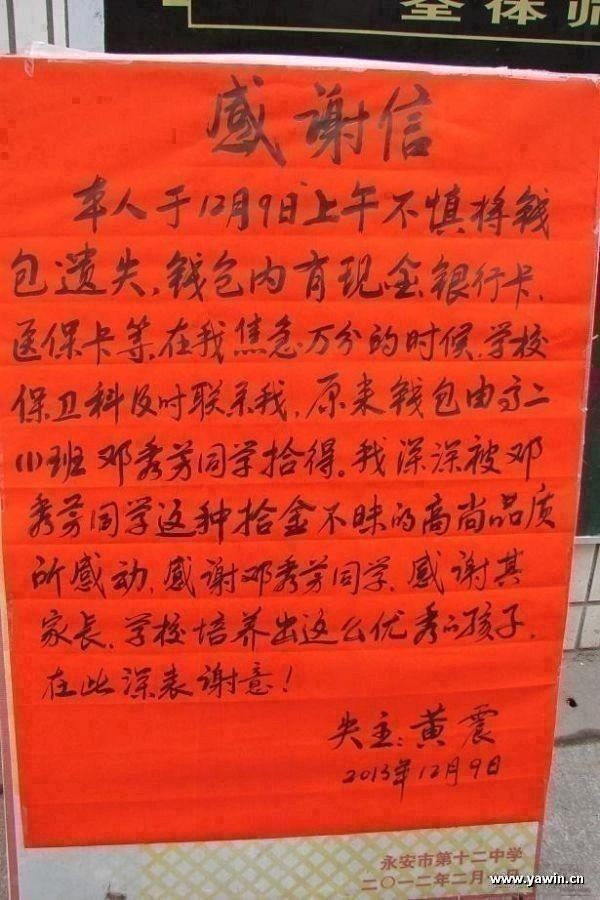 全体师
感谢信
本人于12月9日上午不慎将钱
包遗失,钱包内有现金、银行卡、
医保卡等,在我焦急万分的时候,学校
保卫科及时联系我,原来钱包由高二
(1)班邓秀芳同学拾得。我深深被邓
秀芳同学这种拾金不昧的高尚品质
所感动,感谢邓秀芳同学,感谢其
家长、学校培养出这么优秀的孩子,
在此深表谢意!
失主:黄震
2013年12月9日
永安市第十二中学
二〇一二年二月
www.yawin.cn